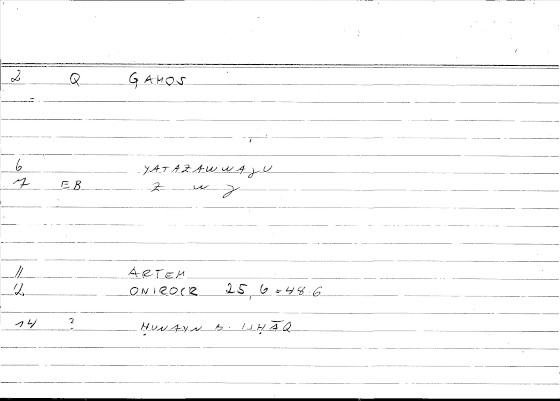 2 Q GAMOS
=
6 YATAZAWWAǦU
7 EB Z W Ǧ
11 ARTEM
12 ONIROCR 25, 6 = 48 6
14 ? ḤUNAYN B. ISḤĀQ